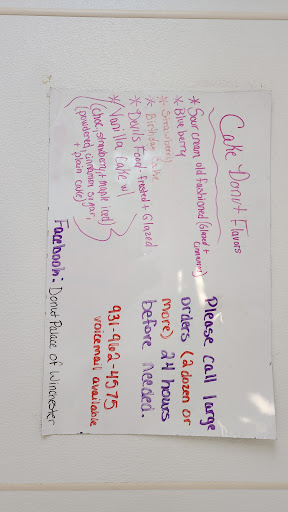 Cake Donut Flavors
* Sour cream old fashioned (Glazed + Cinnamon)
* Blueberry
* Strawberry
* Birthday Cake
* Devils Food Frosted + Glazed
* Vanilla Cake w/
(choc, strawberry, + maple iced)
(powdered, cinnamon sugar,
+ plain cake)
Please call large
orders (2 dozen or
more) 24 hours
before needed.
931-962-4575
voicemail available
Facebook: Donut Palace of Winchester